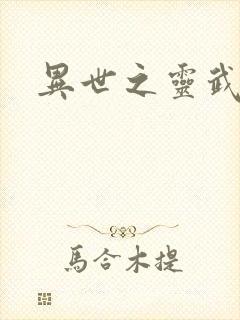 異世之靈武
馬合木提